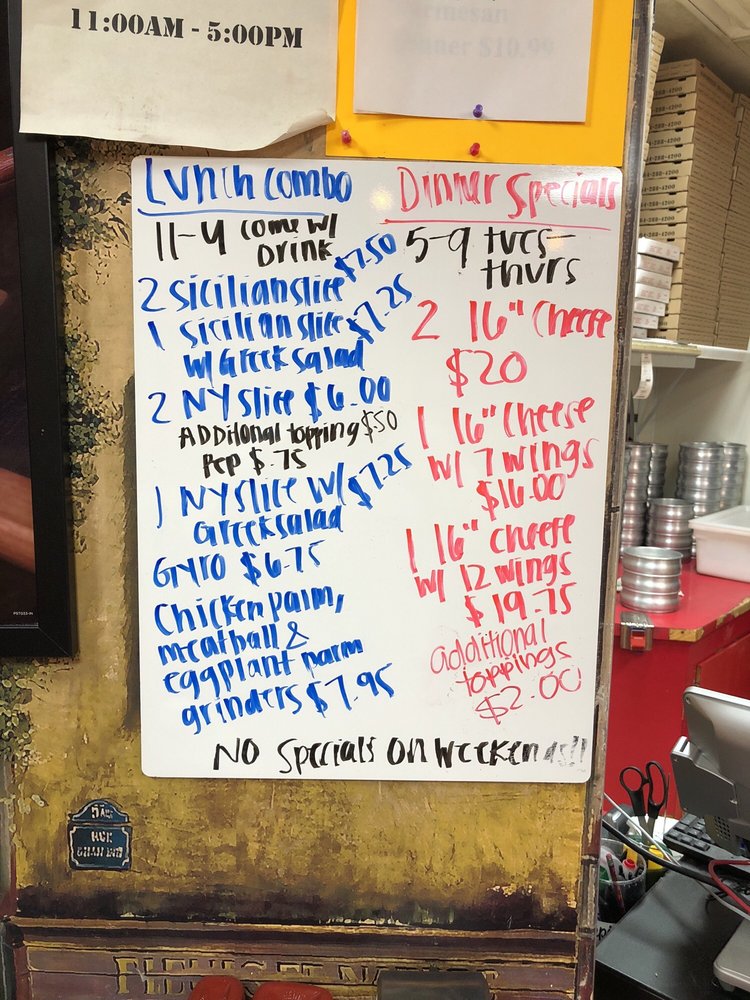 11:00AM - 5:00PM
Parmesan
Dinner $10.99
Lunch Combo
11-4 come w/
Drink
2 sicilian slice $7.50
1 sicilian slice $7.25
w/ Greek salad
2 NY slice $6.00
ADDitional topping $50
Pep $.75
1 NY slice w/ $7.25
Greek salad
Gyro $6.75
Chicken parm,
meatball &
eggplant parm
grinders $7.95
Dinner Specials
5-9 tues-
thurs
2 16" Cheese
$20
1 16" Cheese
w/ 7 wings
$16.00
1 16" cheese
w/ 12 wings
$19.75
additional
toppings
$2.00
NO Specials on weekends!!